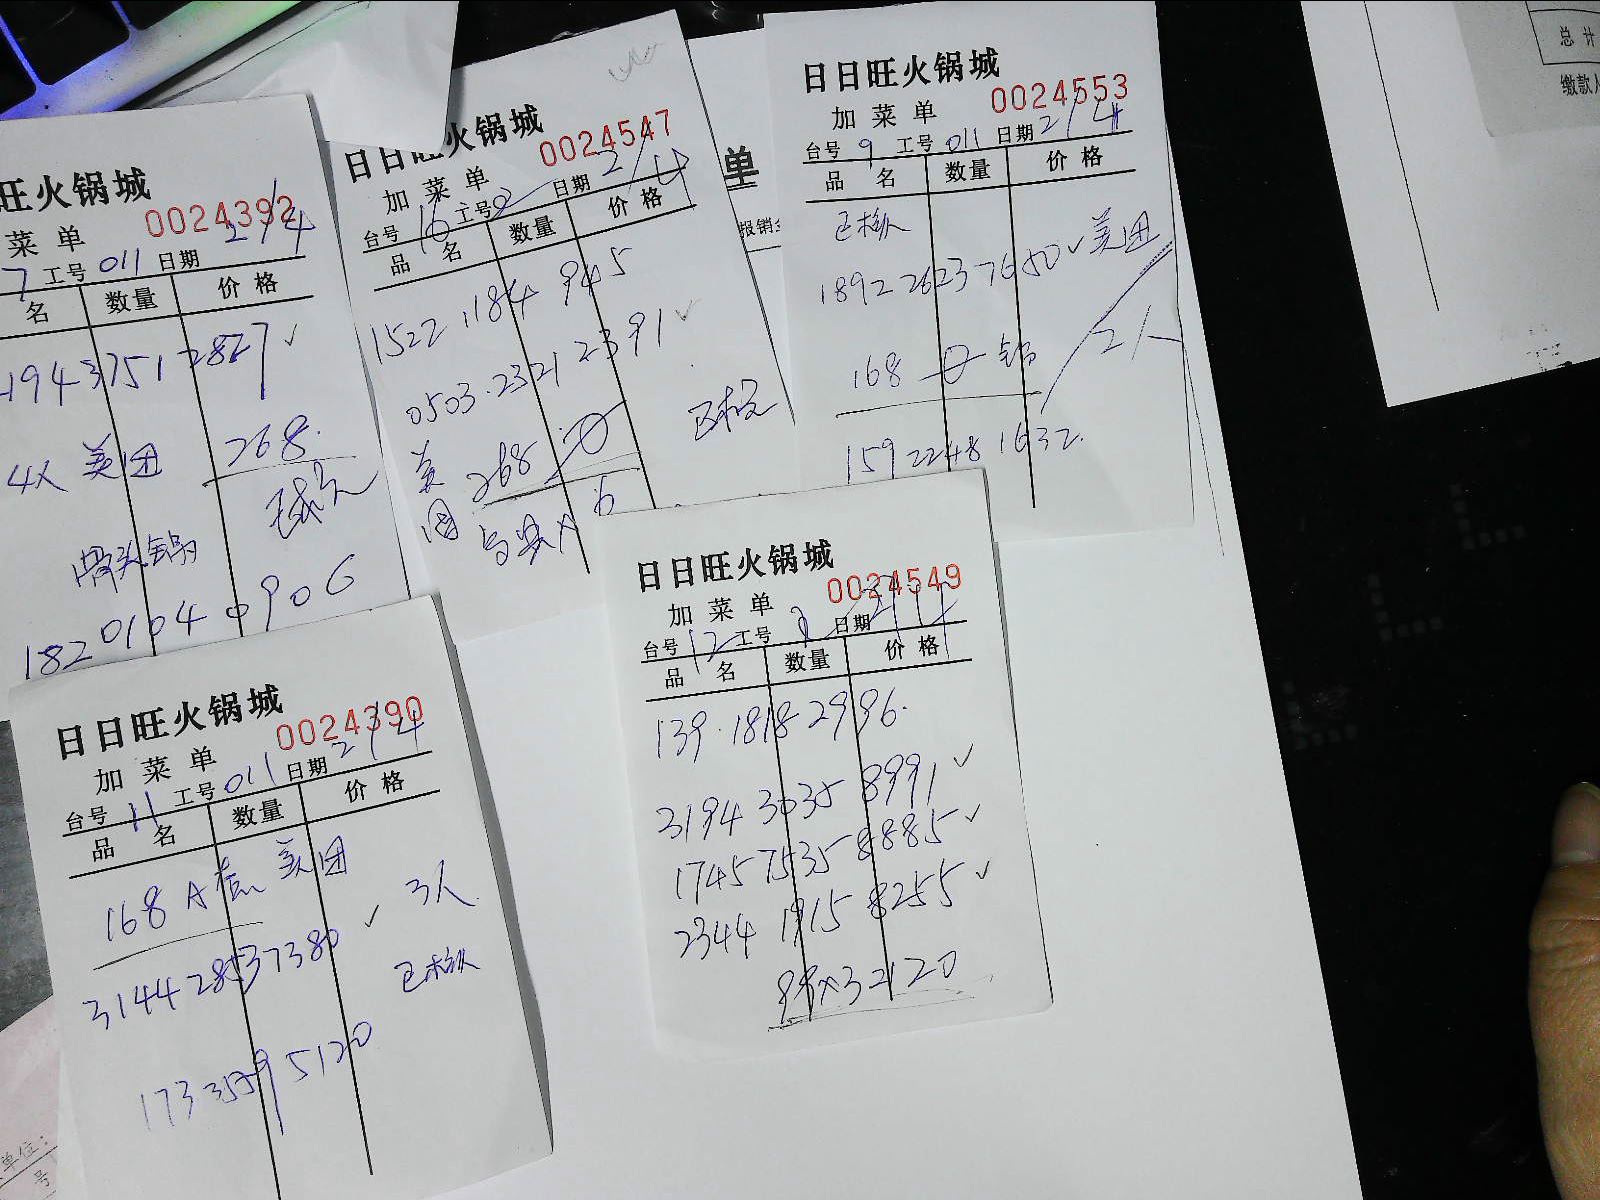 旺火锅城
0024392
菜单
7 工号 011 日期 2/4
名 数量 价格
1943751 2827 ✓
4人 美团 268.
骨头锅
1820104 0906
日日旺火锅城
0024547
加菜单
台号 16 工号 2 日期 2/4
品名 数量 价格
1522 1184 945
0503.2321 2391 ✓
美团 268
单
报销
日日旺火锅城
0024553
加菜单
台号 9 工号 011 日期 2/4
品名 数量 价格
已核
1892 2623 7650 ✓ 美团
168 锅 2人
159 2248 1632.
日日旺火锅城
0024390
加菜单
台号 11 工号 011 日期 2/4
品名 数量 价格
168 A 美团
3人
3144 2853 7380 ✓
已核
173 3559 5120
日日旺火锅城
0024549
加菜单
台号 12 工号 日期 2/4
品名 数量 价格
139.1818 2996.
3194 3035 8991 ✓
1745 7535 8885 ✓
2344 1915 8255 ✓
99x3 2120
总计
缴款人
单位：
号